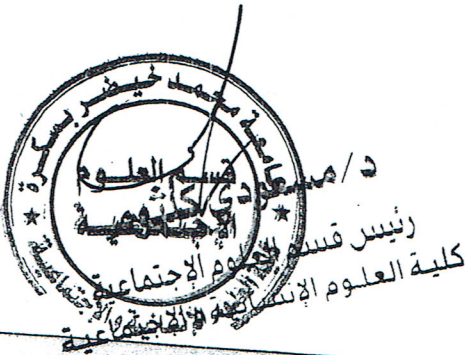 جامعة محمد خيضر بسكرة
قسم العلوم
الإجتماعية
د/مسعودي كلثوم
رئيس قسم العلوم الإجتماعية
كلية العلوم الإنسانية والإجتماعية